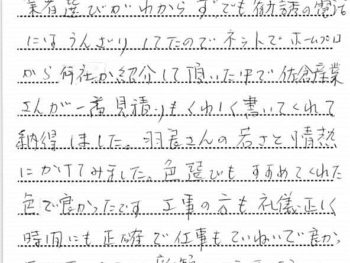 業者選びがわからず、でも勧誘の電話
にはうんざりしてたのでネットでホームプロ
から何社か紹介して頂いた中で佐倉産業
さんが一番見積りもくわしく書いてくれて
納得しました。羽尾さんの若さと情熱
にかけてみました。色選びもすすめてくれた
色で良かったです 工事の方も礼儀正しく
時間にも正確で仕事もていねいで良かっ